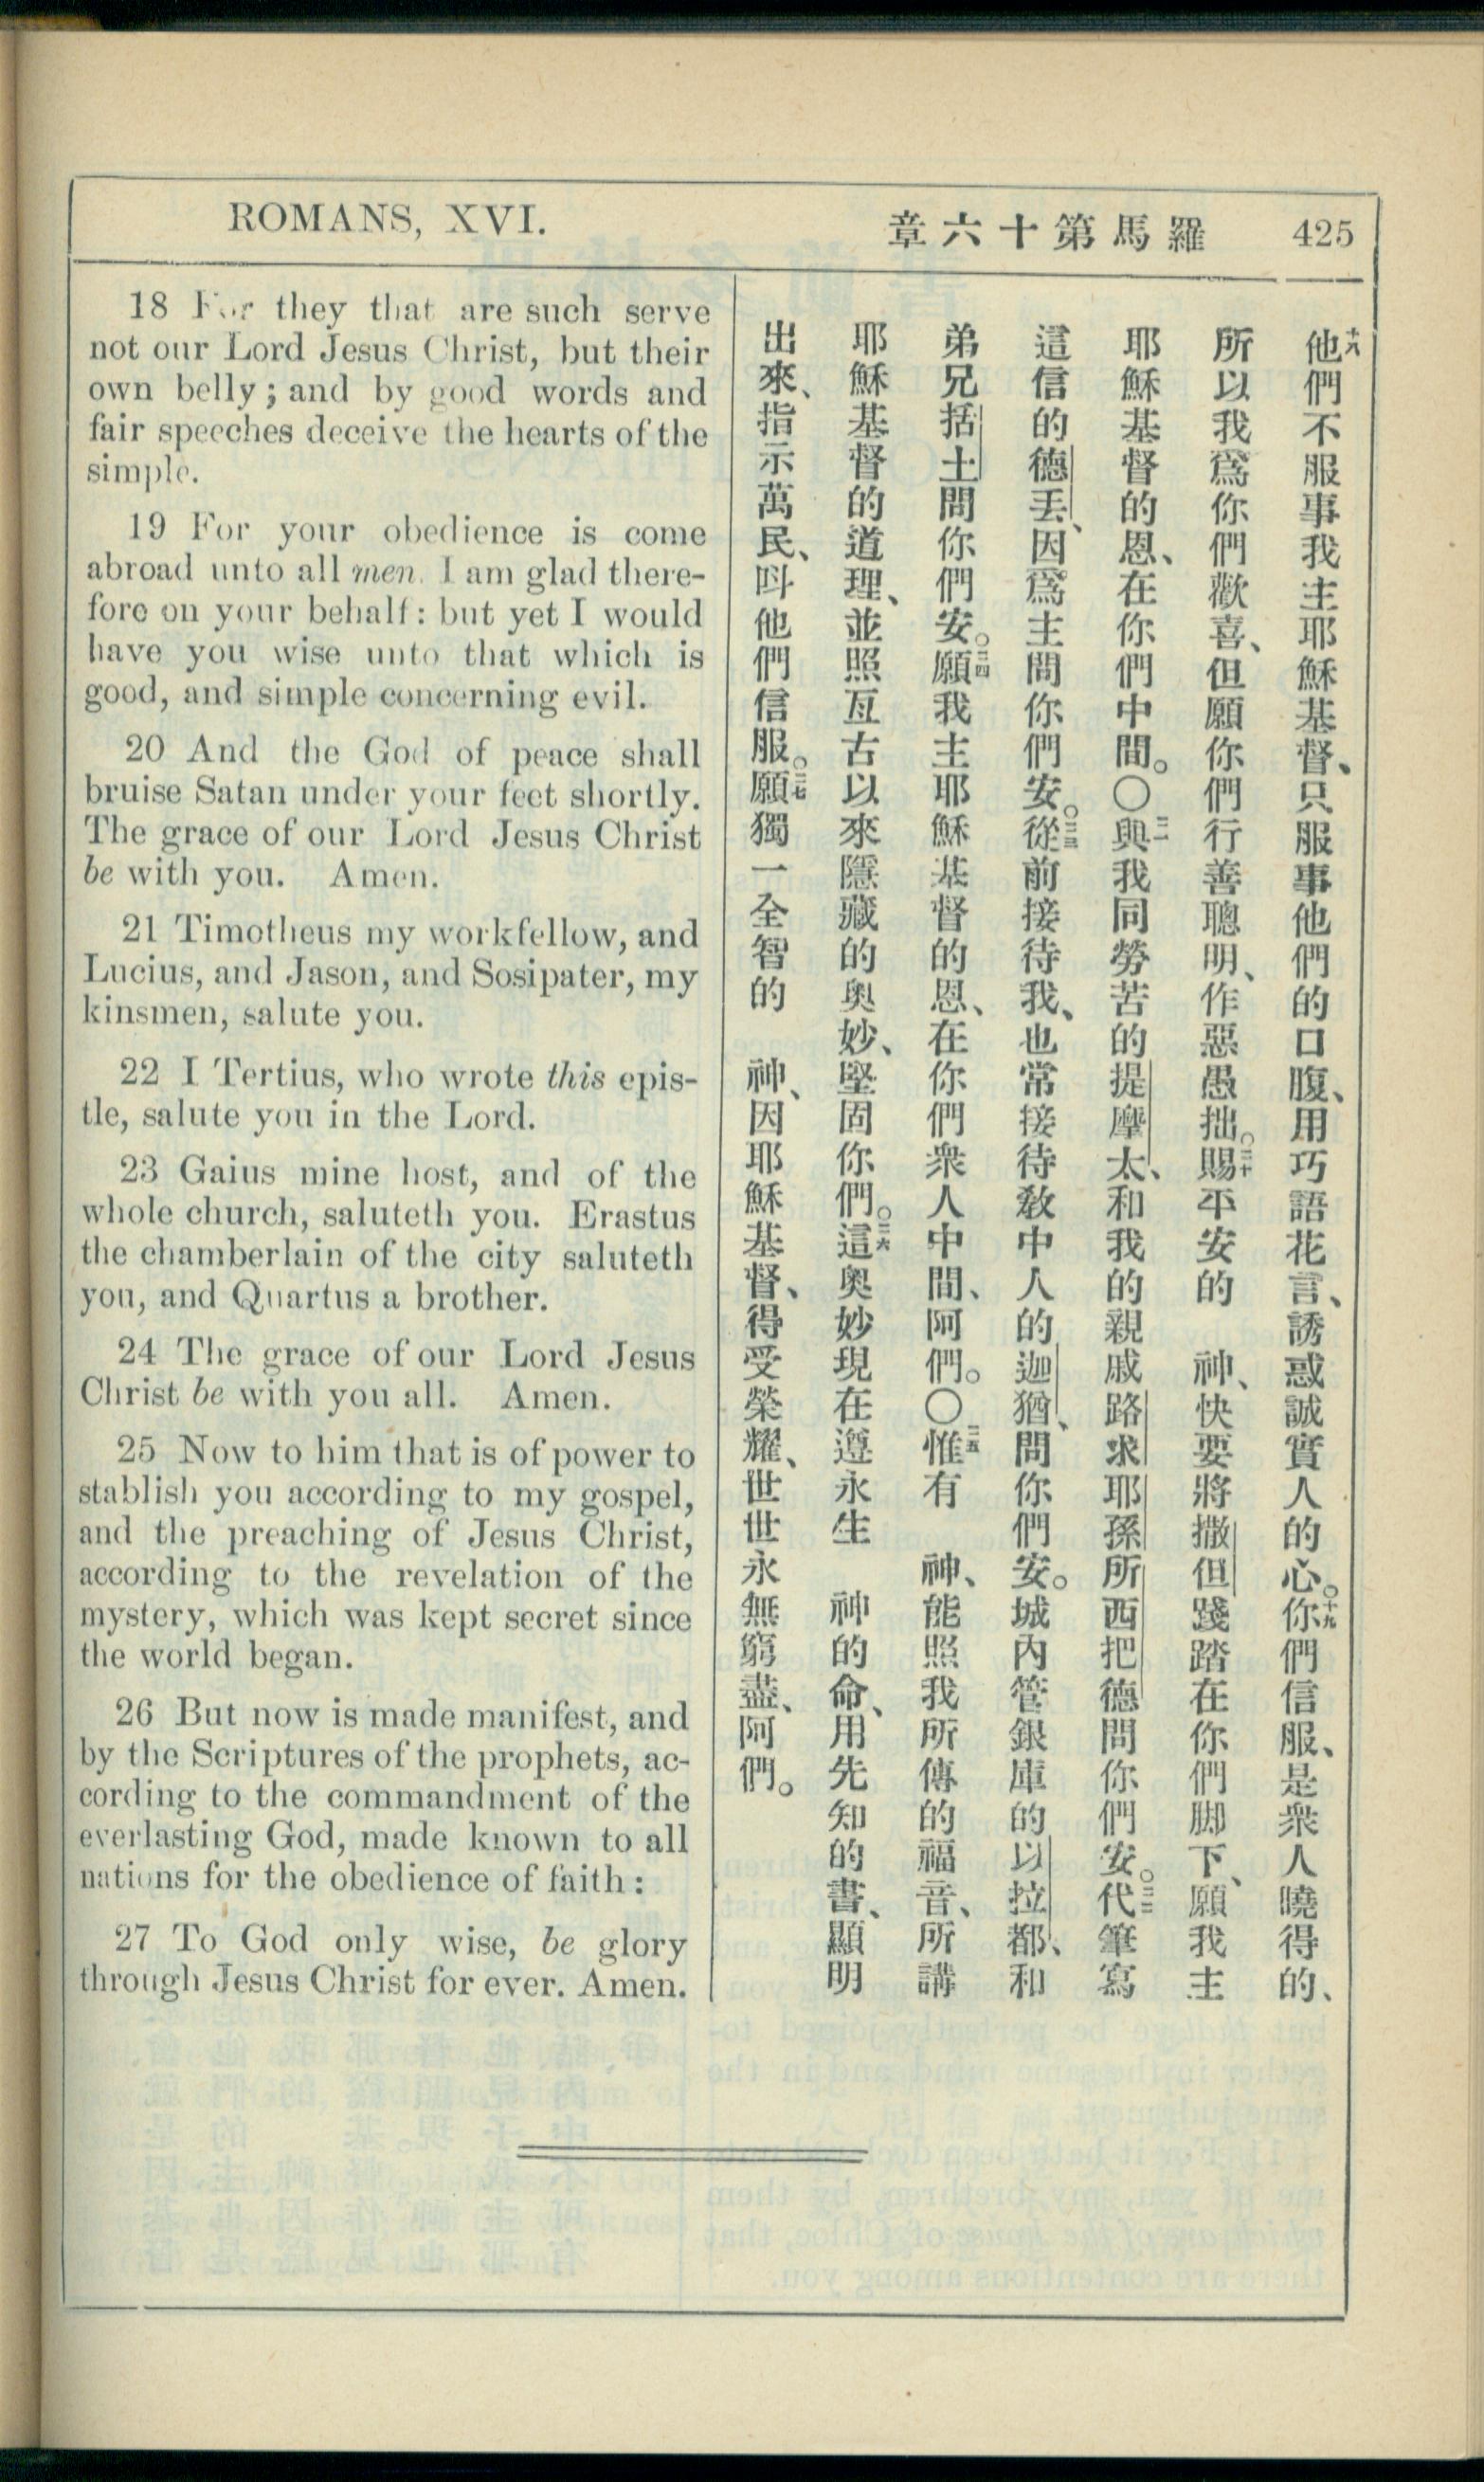 ROMANS, XVI.
羅馬第十六章
425
18 For they that are such serve
not our Lord Jesus Christ, but their
own belly; and by good words and
fair speeches deceive the hearts of the
simple.
19 For your obedience is come
abroad unto all men. I am glad there-
fore on your behalf: but yet I would
have you wise unto that which is
good, and simple concerning evil.
20 And the God of peace shall
bruise Satan under your feet shortly.
The grace of our Lord Jesus Christ
be with you. Amen.
21 Timotheus my workfellow, and
Lucius, and Jason, and Sosipater, my
kinsmen, salute you.
22 I Tertius, who wrote this epis-
tle, salute you in the Lord.
23 Gaius mine host, and of the
whole church, saluteth you. Erastus
the chamberlain of the city saluteth
you, and Quartus a brother.
24 The grace of our Lord Jesus
Christ be with you all. Amen.
25 Now to him that is of power to
stablish you according to my gospel,
and the preaching of Jesus Christ,
according to the revelation of the
mystery, which was kept secret since
the world began.
26 But now is made manifest, and
by the Scriptures of the prophets, ac-
cording to the commandment of the
everlasting God, made known to all
nations for the obedience of faith:
27 To God only wise, be glory
through Jesus Christ for ever. Amen.
十八他們不服事我主耶穌基督、只服事他們的口腹、用巧語花言、誘惑誠實人的心。十九你們信服、是衆人曉得的、
所以我爲你們歡喜、但願你們行善聰明、作惡愚拙。二十賜平安的 神、快要將撒但踐踏在你們脚下、願我主
耶穌基督的恩、在你們中間。〇二一與我同勞苦的提摩太、和我的親戚路求耶孫所西把德問你們安。二二代筆寫
這信的德丟、因爲主問你們安。二三從前接待我、也常接待教中人的迦猶、問你們安。城內管銀庫的以拉都、和
弟兄括土問你們安。二四願我主耶穌基督的恩、在你們衆人中間、阿們。〇二五惟有 神、能照我所傳的福音、所講
耶穌基督的道理、並照亙古以來隱藏的奧妙、堅固你們。二六這奧妙現在遵永生 神的命、用先知的書、顯明
出來、指示萬民、呌他們信服。二七願獨一全智的 神、因耶穌基督、得受榮耀、世世永無窮盡、阿們。